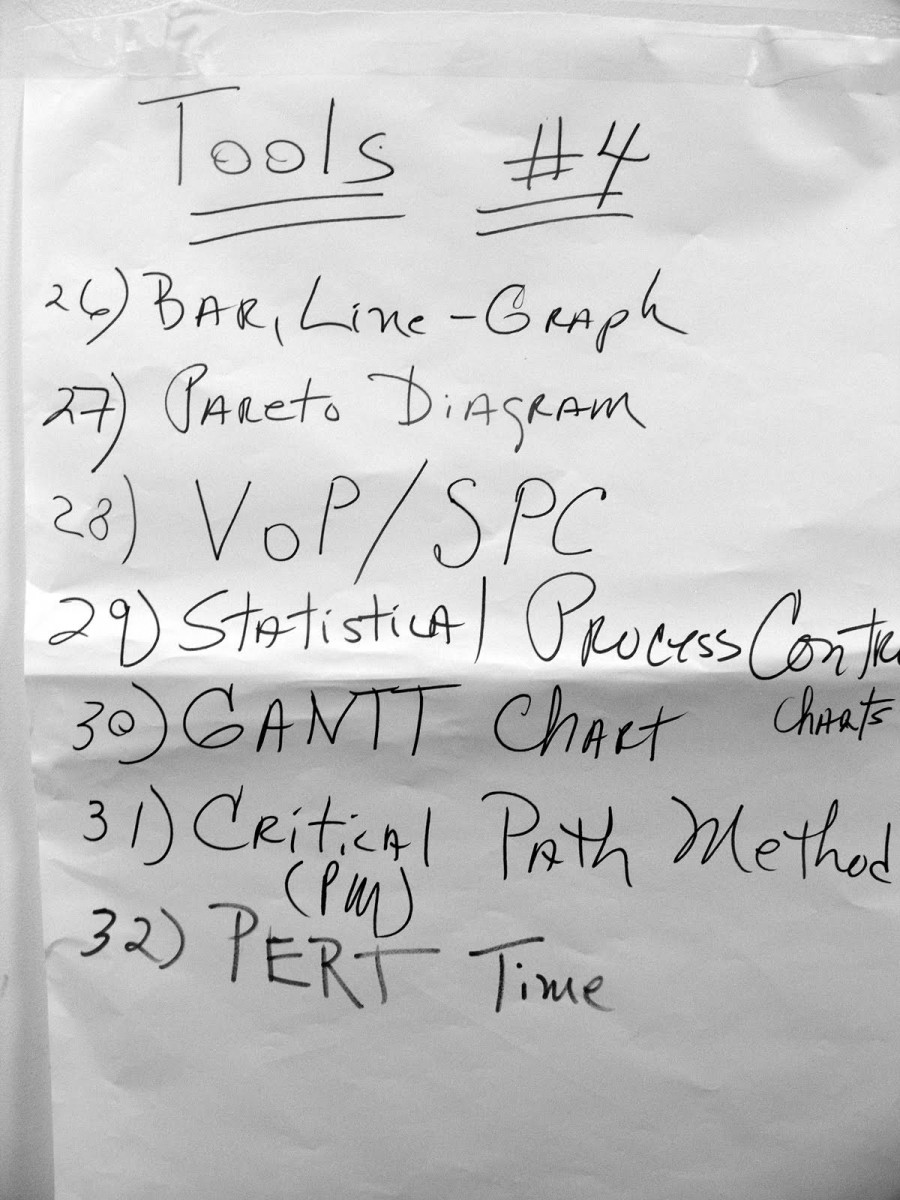 Tools #4
26) BAR, Line-GRAph
27) PAReto DiAgRAM
28) VoP/SPC
29) StAtisticAl PRocess Contr
Charts
30) GANTT ChARt
31) CRiticAl PAth Method
(PM)
32) PERT Time